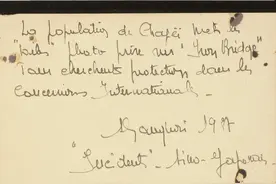 La population de Chapëi mets les
"voiles" photo prise sur "Iron Bridge"
Tous cherchents protection dans les
Concessions Internationals.
1937
"Incident" - Sino-Japonais.